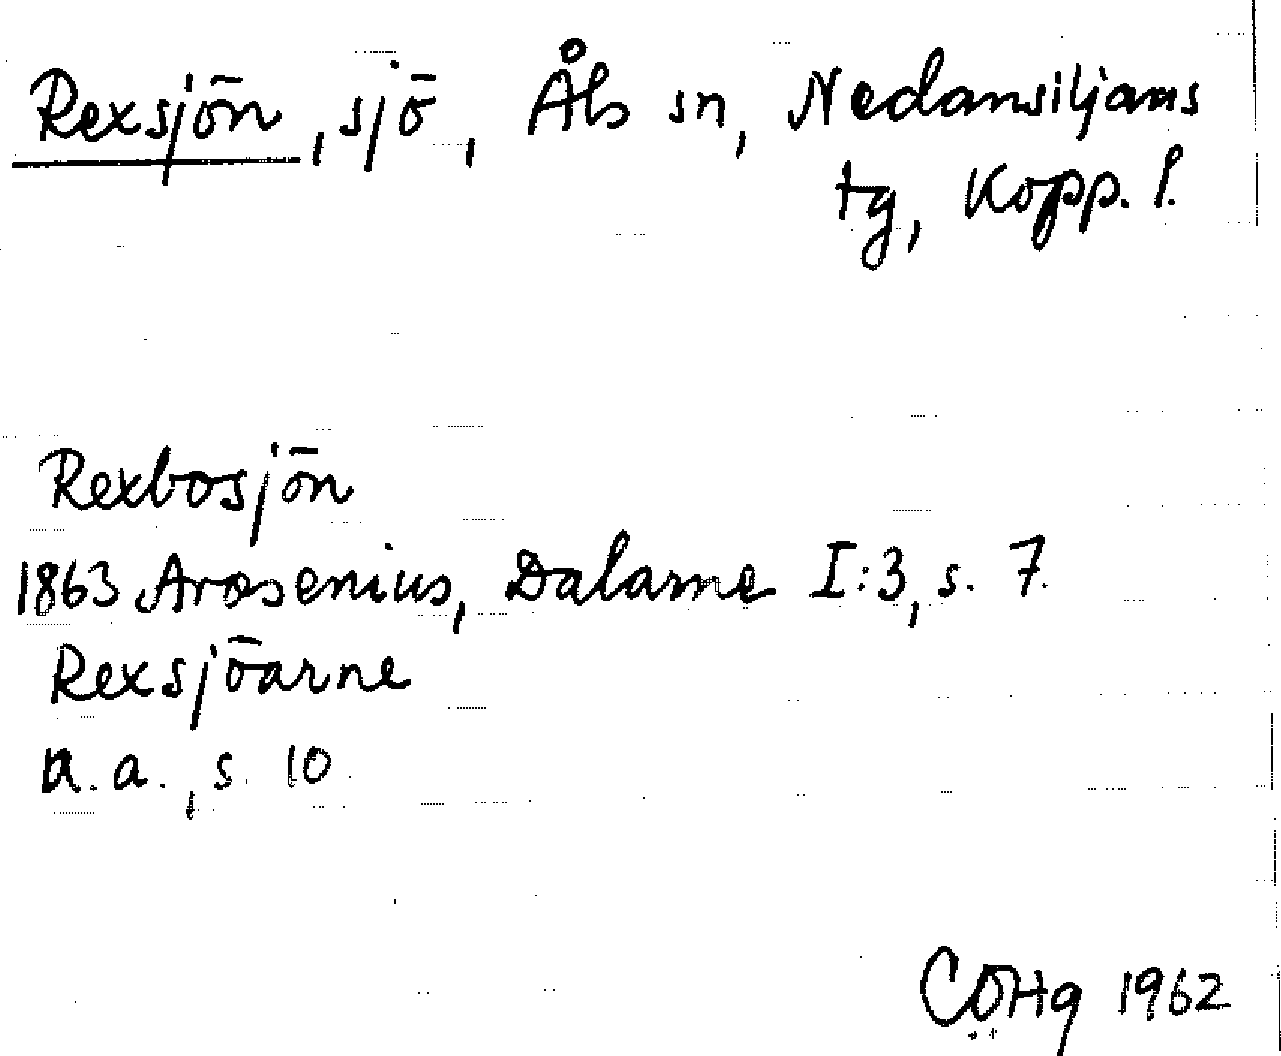 Rexsjön, sjö, Åls sn, Nedansiljans
tg, Kopp. l.
Rexbosjön
1863 Arosenius, Dalarne I:3, s. 7.
Rexsjöarne
a. a., s. 10
1962